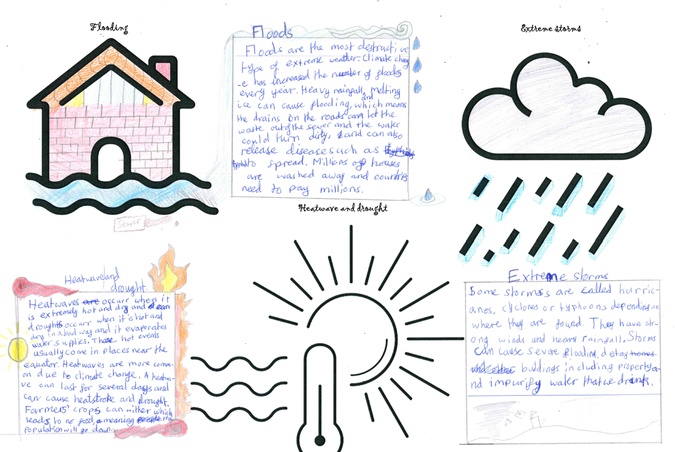 Flooding
Floods
Floods are the most destructive
type of extreme weather. Climate chang
-e has increased the number of floods
every year. Heavy rainfall and melting
ice can cause flooding, which means
the drains on the roads can let the
waste out of the sewer and the water
could turn dirty, and can also
release diseases such as
to spread. Millions of houses
are washed away and countries
need to pay millions.
Extreme storms
Heatwave and drought
Heatwave and
drought
Heatwaves occurr when it
is extremely hot and dry and
droughts occurr when it's hot and
dry in a bad way and it evaporates
water supplies. These hot events
usually come in places near the
equator. Heatwaves are more comm-
on due to climate change. A heatwa-
ve can last for several days and
can cause heatstroke and drought.
Farmers' crops can wither which
leads to no food, meaning
population will go down.
Extreme storms
Some storms are called hurric-
anes, cyclones or typhoons depending on
where they are found. They have str-
ong winds and heavy rainfall. Storms
can cause severe flooding, destroy
buildings including property a-
nd impurify water that we drink.